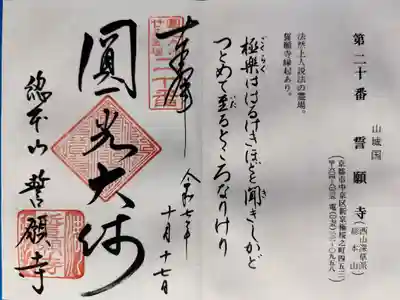 第二十番 誓願寺
山城国
(西山深草派
総本山)
(京都市中京区新京極桜之町四五三
法然上人説法の霊場。
誓願寺縁起あり。
極楽ははるけきほどと聞きしかど
ごくらく
つとめて至るところなりけり
いた
奉拝
令和七年
十月十七日
圓光大師
総本山 誓願寺